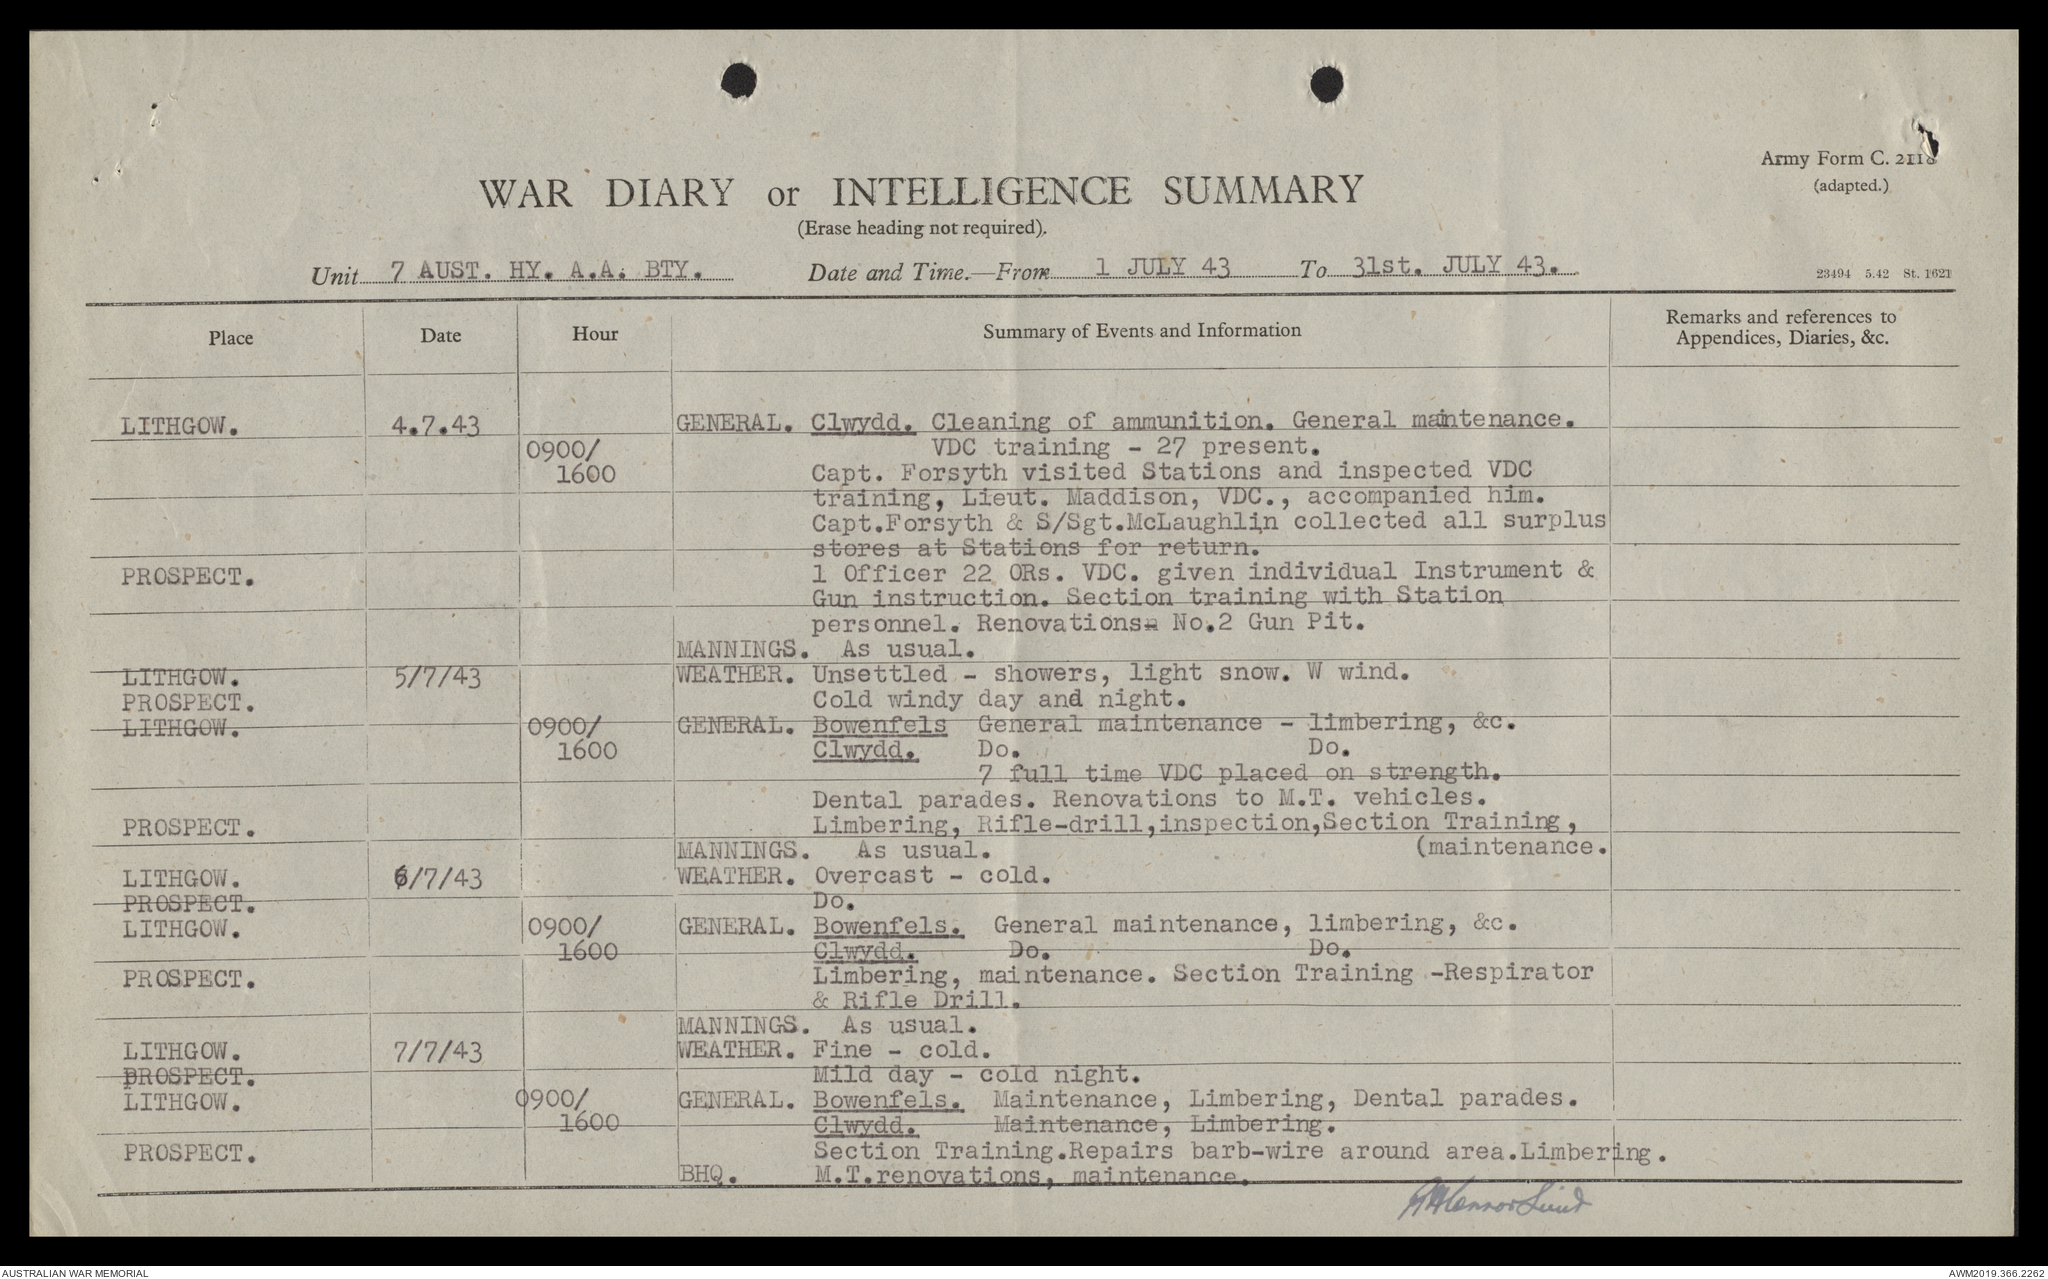 Army Form C. 2118
(adapted.)
WAR DIARY or INTELLIGENCE SUMMARY
(Erase heading not required).
Unit 7 AUST. HY. A.A. BTY. Date and Time.—From 1 JULY 43 To 31st. JULY 43.
23494 5.42 St. 1621
Place Date Hour Summary of Events and Information Remarks and references to
Appendices, Diaries, &c.
LITHGOW. 4.7.43 GENERAL. Clwydd. Cleaning of ammunition. General maintenance.
0900/ VDC training - 27 present.
1600 Capt. Forsyth visited Stations and inspected VDC
training, Lieut. Maddison, VDC., accompanied him.
Capt.Forsyth & S/Sgt.McLaughlin collected all surplus
stores at Stations for return.
PROSPECT. 1 Officer 22 ORs. VDC. given individual Instrument &
Gun instruction. Section training with Station
personnel. Renovations- No.2 Gun Pit.
MANNINGS. As usual.
LITHGOW. 5/7/43 WEATHER. Unsettled - showers, light snow. W wind.
PROSPECT. Cold windy day and night.
LITHGOW. 0900/ GENERAL. Bowenfels General maintenance - limbering, &c.
1600 Clwydd. Do. Do.
7 full time VDC placed on strength.
Dental parades. Renovations to M.T. vehicles.
PROSPECT. Limbering, Rifle-drill,inspection,Section Training,
MANNINGS. As usual. (maintenance.
LITHGOW. 6/7/43 WEATHER. Overcast - cold.
PROSPECT. Do.
LITHGOW. 0900/ GENERAL. Bowenfels. General maintenance, limbering, &c.
1600 Clwydd. Do. Do.
PROSPECT. Limbering, maintenance. Section Training -Respirator
& Rifle Drill.
MANNINGS. As usual.
LITHGOW. 7/7/43 WEATHER. Fine - cold.
PROSPECT. Mild day - cold night.
LITHGOW. 0900/ GENERAL. Bowenfels. Maintenance, Limbering, Dental parades.
1600 Clwydd. Maintenance, Limbering.
PROSPECT. Section Training.Repairs barb-wire around area.Limbering.
BHQ. M.T.renovations, maintenance.
Lieut
AUSTRALIAN WAR MEMORIAL AWM2019.366.2262